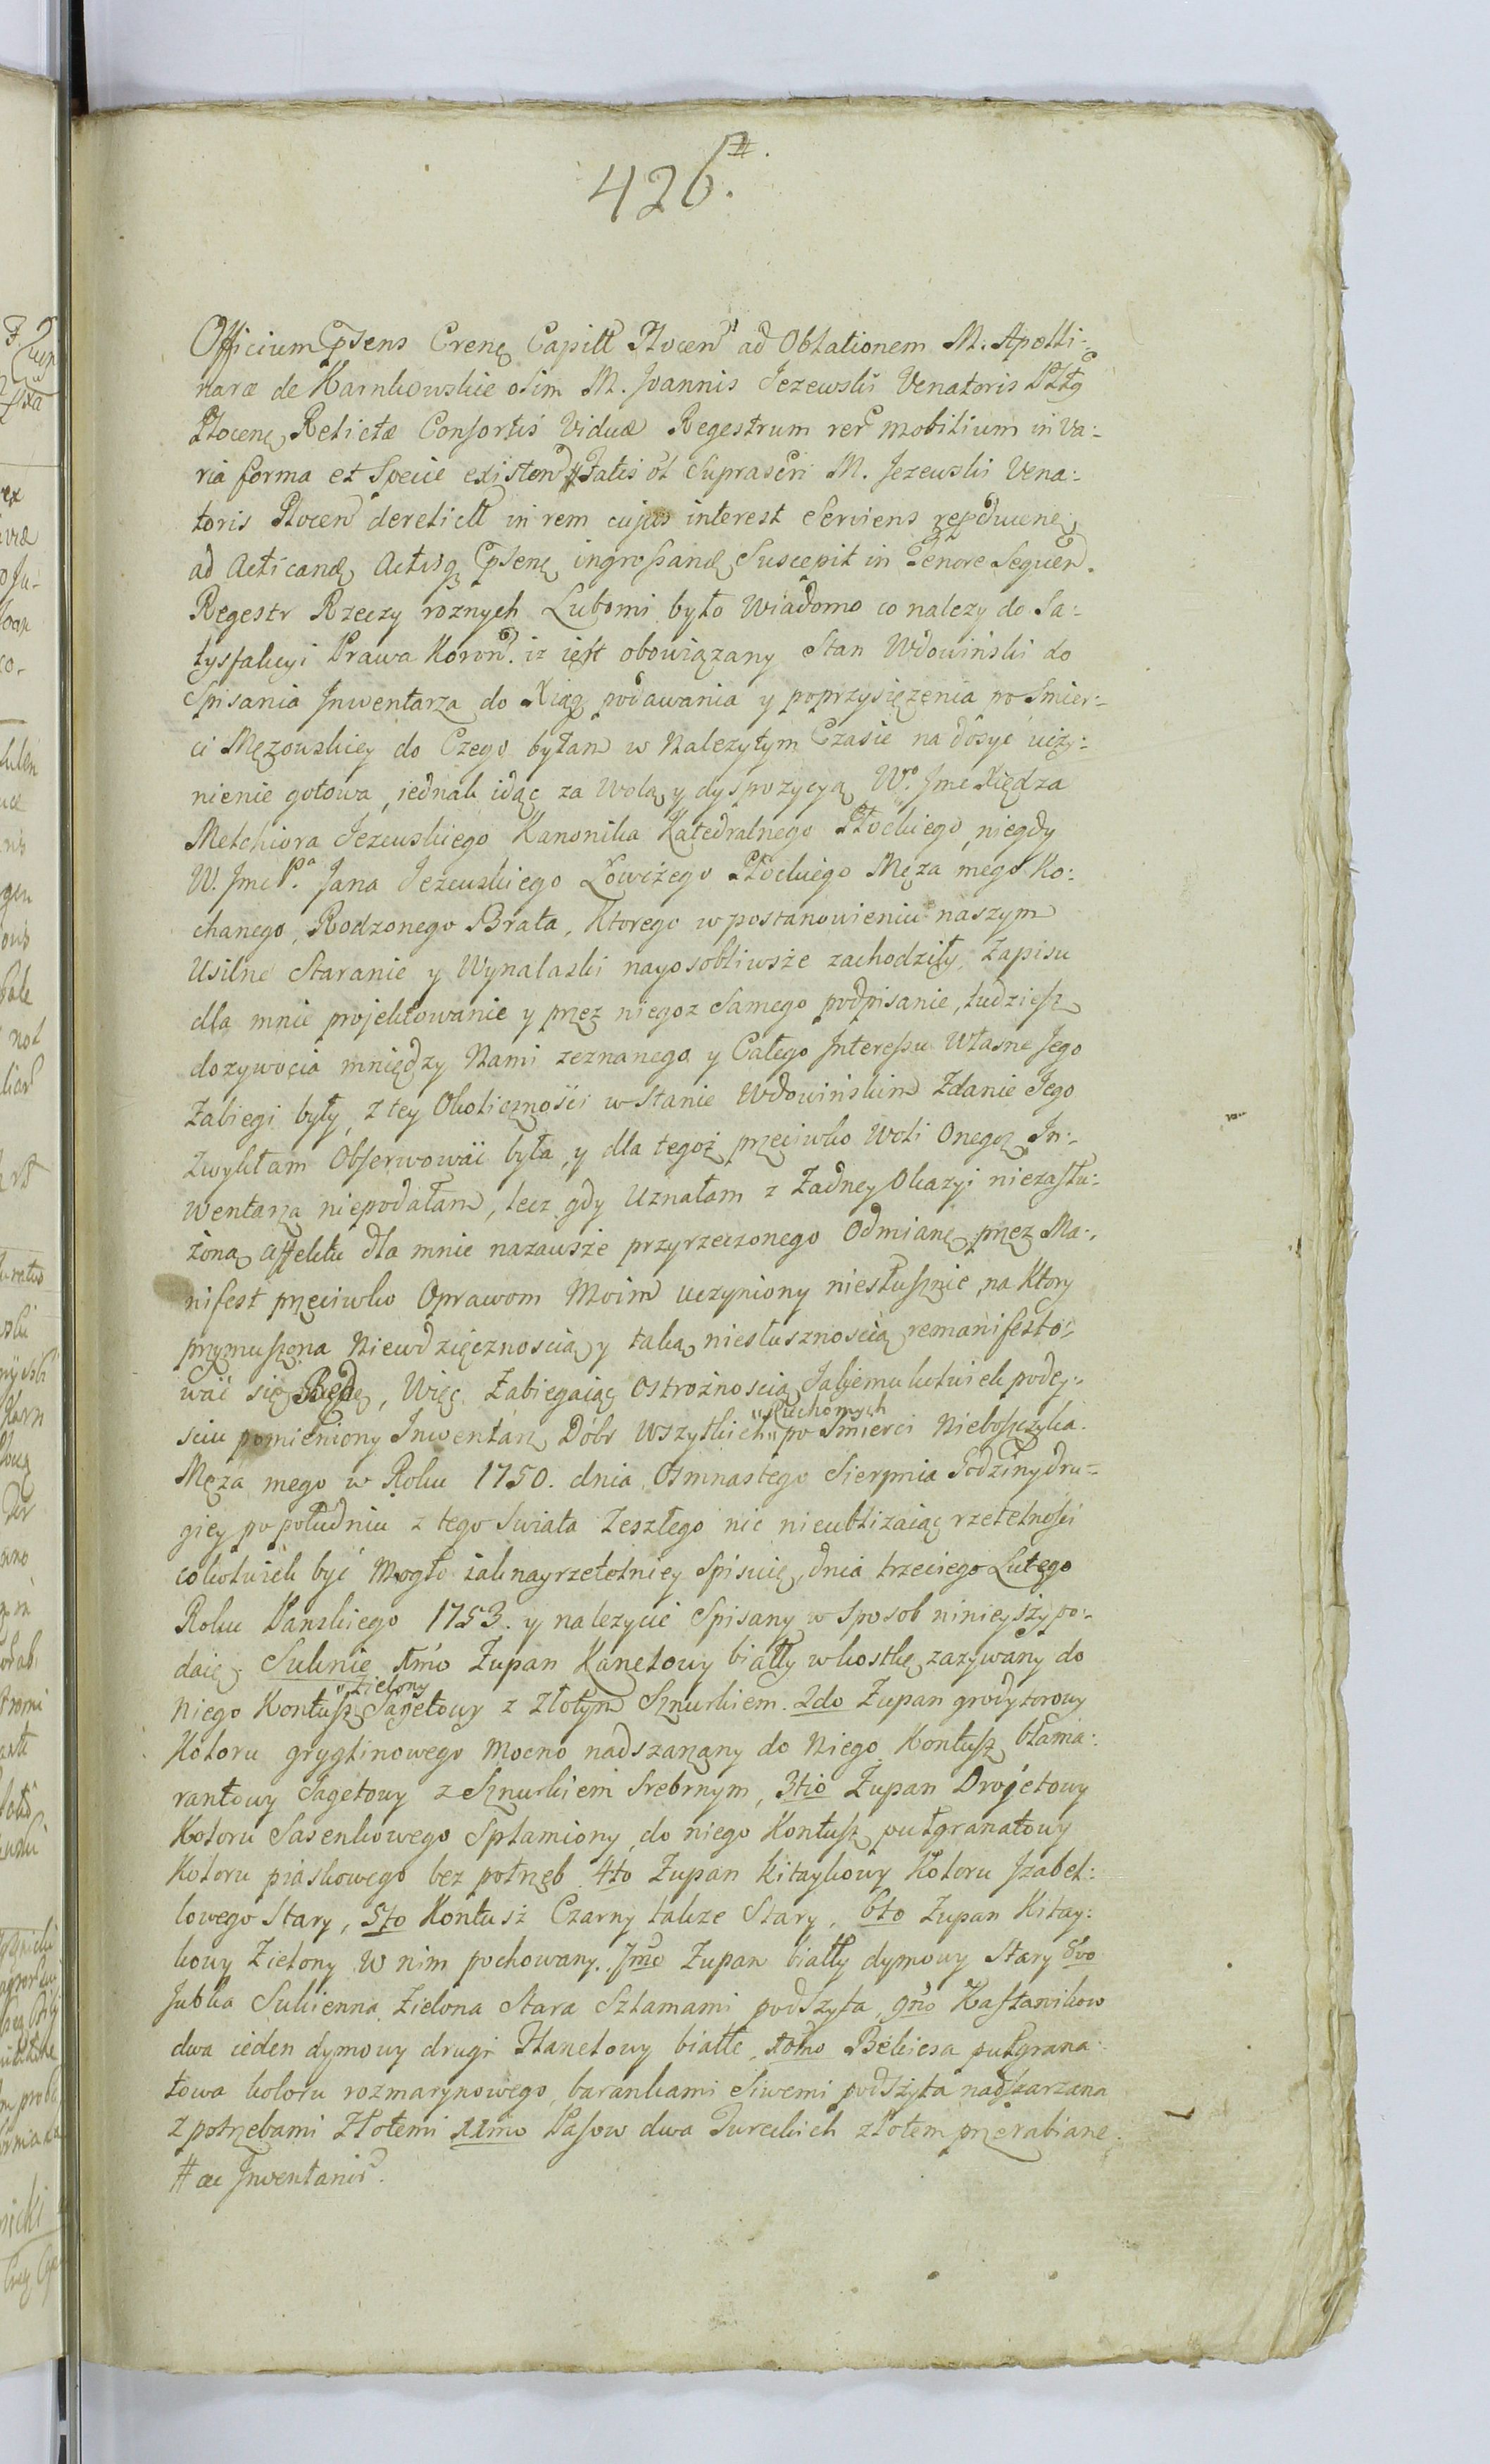 426.
Officium Psens Crenę Capitł Płocen ad Oblationem M. Apolli-
naræ de Karnkowskie olim M. Joannis Jezewski Venatoris
Płocenę Relictæ Consortis Viduæ Regestrum rer mobilium in Va-
ria forma et Specie existen # Fatis ol Suprascri M. Jezewski Vena-
toris Płocen derelictt in rem cujus interest Serviens
ad Acticandę Actisq psenę ingrossandę Suscepit in Tenore Sequen.
Regestr Rzeczy roznych Lubomi było Wiadomo co nalezy do Sa-
tysfakcyi Prawa Koron. iz iest obowiązany Stan Wdowiński do
Spisania Jnwentarza do Xiąg podawania y poprzysięzenia po Smier-
ci Męzowskiey do Czego byłam w Nalezytym Czasie na dosyć uczy-
nienie gotowa, iednak idąc za Wolą y dyspozycyą Wo. Jmc Xiędza
Melchiora Jezewskiego Kanonika Katedralnego Płockiego, niegdy
W. Jmc Pa. Jana Jezewskiego Łowczego Płockiego Męza mego Ko-
chanego, Rodzonego Brata, Ktorego w postanowieniu naszym
Usilne Staranie y Wynalaski nayosobliwsze zachodziły, Zapisu
dla mnie projektowanie y przez niegoz Samego podpisanie, tudziesz
dozywocia między Nami zeznanego y Całego Interessu Własne Jego
Zabiegi były, z tey Okoliczności w Stanie Wdowińskim Zdanie Jego
Zwykłam Obserwować była, y dla tegoż przeciwko Woli Onegoz In-
wentarza niepodałam, lecz gdy Uznałam z Zadney Okazyi niezasłu-
żoną affektu dla mnie nazawsze przyrzeczonego Odmianę przez Ma-
nifest przeciwko Oprawom Moim uczyniony niesłusznie, na Ktory
przymuszona Niewdzięcznoscią y taką niesłusznoscią remanifesto-
wać się Będę, Więc Zabiegaiąc Ostrożnoscią Jakiemukolwiek podey-
sciu pomieniony Inwentarz Dóbr Wszytkich "Ruchomych" po Smierci Nieboszczyka
Męza mego w Roku 1750. dnia Osmnastego Sierpnia Godziny dru-
giey po południu z tego Swiata Zeszłego nic nieubliżaiąc rzetelności
cokolwiek być Mogło iak nayrzetelniey Spisuię, dnia trzeciego Lutego
Roku Panskiego 1753. y nalezycie Spisany w Sposob ninieyszy po-
daię. Suknie 1mo Zupan Kanetowy biały w kostkę zazywany do
Niego Kontusz "zielony" Sagetowy z Złotym Sznurkiem. 2do Zupan grodytorowy
Koloru gryglinowego Mocno nadszarzany do Niego Kontusz błama-
rantowy Sagetowy z Sznurkiem Srebrnym, 3tio Zupan Drojetowy
Koloru Sasenkowego Splamiony do niego Kontusz pułgranatowy
Koloru piaskowego bez potrzeb 4to Zupan Kitaykowy Koloru Jzabel-
lowego Stary, 5to Kontusz Czarny takze Stary, 6to Zupan Kitay-
kowy Zielony W nim pochowany. 7mo Zupan biały dymowy Stary 8vo
Jubka Sukienna Zielona Stara Szlamami podszyta, 9no Kaftanikow
dwa ieden dymowy drugi Kanetowy białe 10mo Bekiesa pułgrana-
towa koloru rozmarynowego, barankami Siwemi podszyta nadszarzana
z potrzebami Złotemi 11mo Pasow dwa Tureckich złotem przerabiane
# ac Jnventaris.